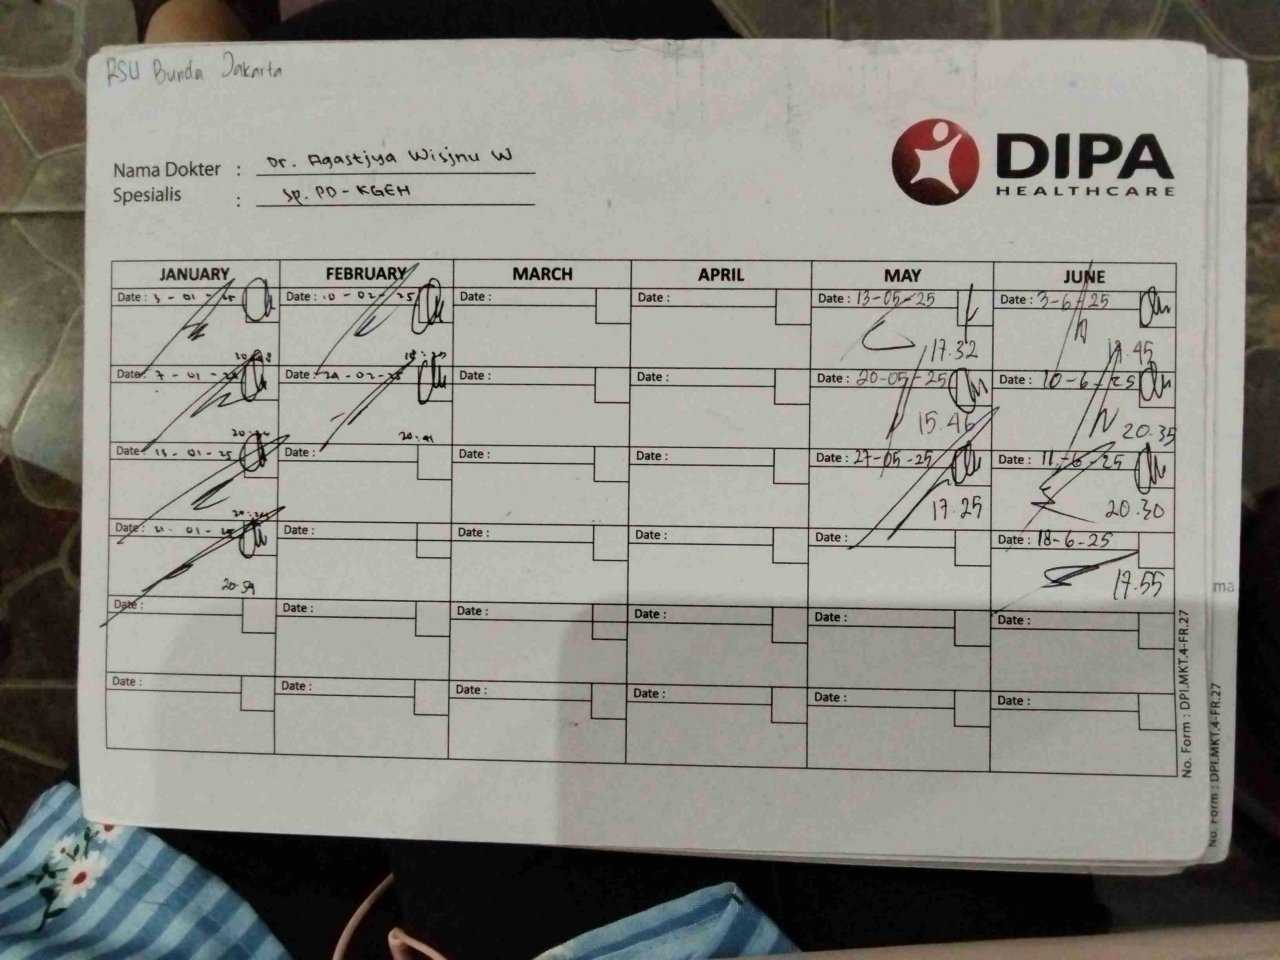 RSU Bunda Jakarta
DIPA
HEALTHCARE
Nama Dokter : Dr. Agastjya Wisjnu W
Spesialis : Sp. PD-KGEH
JANUARY FEBRUARY MARCH APRIL MAY JUNE
Date : 3 - 01 - 25 Date : 10 - 02 - 25 Date : Date : Date : 13-05-25 Date : 3-6-25
17.32 .45
Date : 7 - 01 - Date : 02 - 25 Date : Date : Date : 20-05-25 Date : 10-6-25
20:41 15.46 20.35
Date : 01 - 25 Date : Date : Date : Date : 27-05-25 Date : 11-6-25
17.25 20.30
Date : 21 - 01 - 25 Date : Date : Date : Date : Date : 18-6-25
20.59 17.55
Date : Date : Date : Date : Date : Date :
Date : Date : Date : Date : Date : Date :
No. Form : DPI.MKT.4-FR.27
No. Form : DPI.MKT.4-FR.27
ma